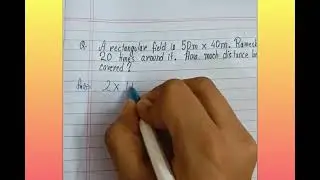 Q. A rectangular field is 50m × 40m. Ramesh
20 times around it. How much distance
covered?
Ans:- 2 ×